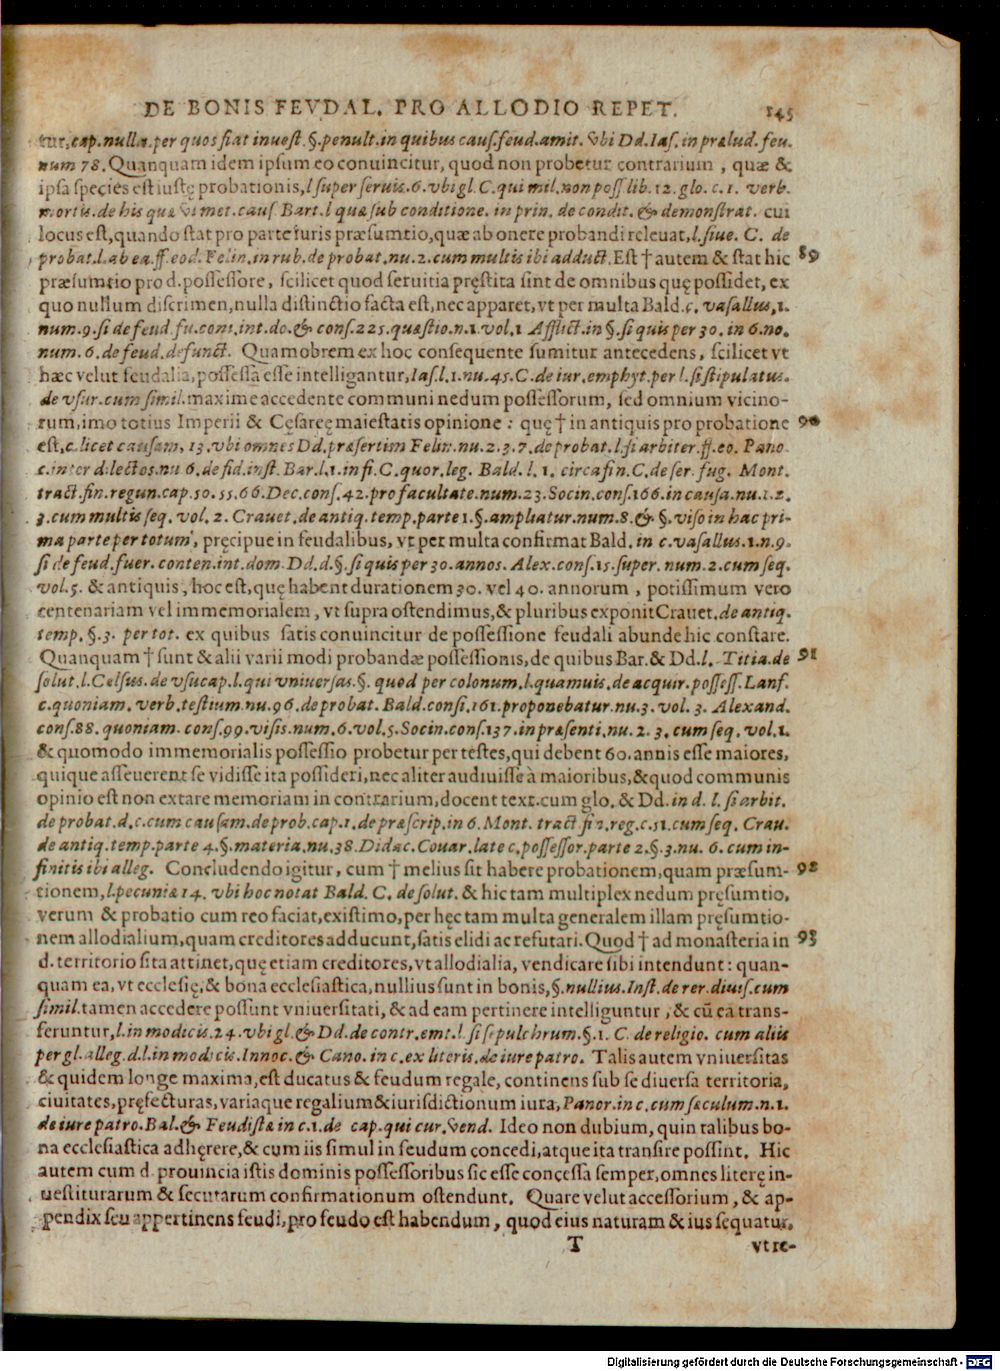 DE BONIS FEVDAL. PRO ALLODIO REPET. 145
tur, cap. nulla. per quos fiat inuest. §. penult. in quibus caus. feud. amit. vbi Dd. Ias. in prælud. feu.
num 78. Quanquam idem ipsum eo conuincitur, quod non probetur contrarium, quæ &
ipsa species est iustę probationis, l super seruis. 6. vbi gl. C. qui mil. non poss lib. 12. glo. c. 1. verb.
mortis. de his quæ vi met. caus Bart. l quæ sub conditione. in prin. de condit. & demonstrat. cui
locus est, quando stat pro parte iuris præsumtio, quæ ab onere probandi releuat, l. siue. C. de
probat. l. ab ea. ff. eod. Felin. in rub. de probat. nu. 2. cum multis ibi adduct. Est † autem & stat hic 89
præsumtio pro d. possessore, scilicet quod seruitia pręstita sint de omnibus quę possidet, ex
quo nullum discrimen, nulla distinctio facta est, nec apparet, vt per multa Bald. c. vasallus, 1.
num. 9. si de feud. fu. cont. int. do. & cons. 225. quæstio. n. 1. vol. 1 Afflict. in §. si quis per 30. in 6. no.
num. 6. de feud. defunct. Quamobrem ex hoc consequente sumitur antecedens, scilicet vt
hæc velut feudalia, possessa esse intelligantur, Ias. l. 1. nu. 45. C. de iur. emphyt. per l. si stipulatus.
de vsur. cum simil. maxime accedente communi nedum possessorum, sed omnium vicino-
rum, imo totius Imperii & Cęsareę maiestatis opinione: quę † in antiquis pro probatione 90
est, c. licet causam. 13. vbi omnes Dd. præsertim Felin. nu. 2. 3. 7. de probat. l. si arbiter. ff. eo. Pano
c. inter dilectos. nu 6. de fid. inst. Bar. l. 1. in fi. C. quor. leg. Bald. l. 1. circa fin. C. de ser. fug. Mont.
tract. fin. regun. cap. 50. 55. 66. Dec. cons. 42. pro facultate. num. 23. Socin. cons. 166. in causa. nu. 1. 2.
3. cum multis seq. vol. 2. Crauet. de antiq. temp. parte 1. §. ampliatur. num. 8. & §. viso in hac pri-
ma parte per totum, pręcipue in feudalibus, vt per multa confirmat Bald. in c. vasallus. 1. n. 9.
si de feud. fuer. conten. int. dom. Dd. d. §. si quis per 30. annos. Alex. cons. 15. super. num. 2. cum seq.
vol. 5. & antiquis, hoc est, quę habent durationem 30. vel 40. annorum, potissimum vero
centenariam vel immemorialem, vt supra ostendimus, & pluribus exponit Crauet. de antiq.
temp. §. 3. per tot. ex quibus satis conuincitur de possessione feudali abunde hic constare.
Quanquam † sunt & alii varii modi probandæ possessionis, de quibus Bar. & Dd. l. Titia. de 91
solut. l. Celsus. de vsucap. l. qui vniuersas. §. quod per colonum. l. quamuis. de acquir. possess. Lanf.
c. quoniam. verb. testium. nu. 96. de probat. Bald. consi. 161. proponebatur. nu. 3. vol. 3. Alexand.
cons. 88. quoniam. cons. 99. visis. num. 6. vol. 5. Socin. cons. 137. in præsenti. nu. 2. 3. cum seq. vol. 1.
& quomodo immemorialis possessio probetur per testes, qui debent 60. annis esse maiores,
quique asseuerent se vidisse ita possideri, nec aliter audiuisse à maioribus, & quod communis
opinio est non extare memoriam in contrarium, docent text. cum glo. & Dd. in d. l. si arbit.
de probat. d. c. cum causam. de prob. cap. 1. de præscrip. in 6. Mont. tract. fin. reg. c. 51. cum seq. Crau.
de antiq. temp. parte 4. §. materia. nu. 38. Didac. Couar. late c. possessor. parte 2. §. 3. nu. 6. cum in-
finitis ibi alleg. Concludendo igitur, cum † melius sit habere probationem, quam præsum- 92
tionem, l. pecuniæ 14. vbi hoc notat Bald. C. de solut. & hic tam multiplex nedum pręsumtio,
verum & probatio cum reo faciat, existimo, per hęc tam multa generalem illam pręsumtio-
nem allodialium, quam creditores adducunt, satis elidi ac refutari. Quod † ad monasteria in 93
d. territorio sita attinet, quę etiam creditores, vt allodialia, vendicare sibi intendunt: quan-
quam ea, vt ecclesię, & bona ecclesiastica, nullius sunt in bonis, §. nullius. Inst. de rer. diuis. cum
simil. tamen accedere possunt vniuersitati, & ad eam pertinere intelliguntur, & cū ea trans-
feruntur, l. in modicis. 24. vbi gl. & Dd. de contr. emt. l. si sepulchrum. §. 1. C. de religio. cum aliis
per gl. alleg. d. l. in modicis. Innoc. & Cano. in c. ex literis. de iure patro. Talis autem vniuersitas
& quidem longe maxima, est ducatus & feudum regale, continens sub se diuersa territoria,
ciuitates, pręfecturas, variaque regalium & iurisdictionum iura, Panor. in c. cum sæculum. n. 1.
de iure patro. Bal. & Feudistæ in c. 1. de cap. qui cur. vend. Ideo non dubium, quin talibus bo-
na ecclesiastica adhęrere, & cum iis simul in feudum concedi, atque ita transire possint. Hic
autem cum d. prouincia istis dominis possessoribus sic esse concessa semper, omnes literę in-
uestiturarum & secutarum confirmationum ostendunt. Quare velut accessorium, & ap-
pendix seu appertinens feudi, pro feudo est habendum, quod eius naturam & ius sequatur,
T vt re-
Digitalisierung gefördert durch die Deutsche Forschungsgemeinschaft - DFG